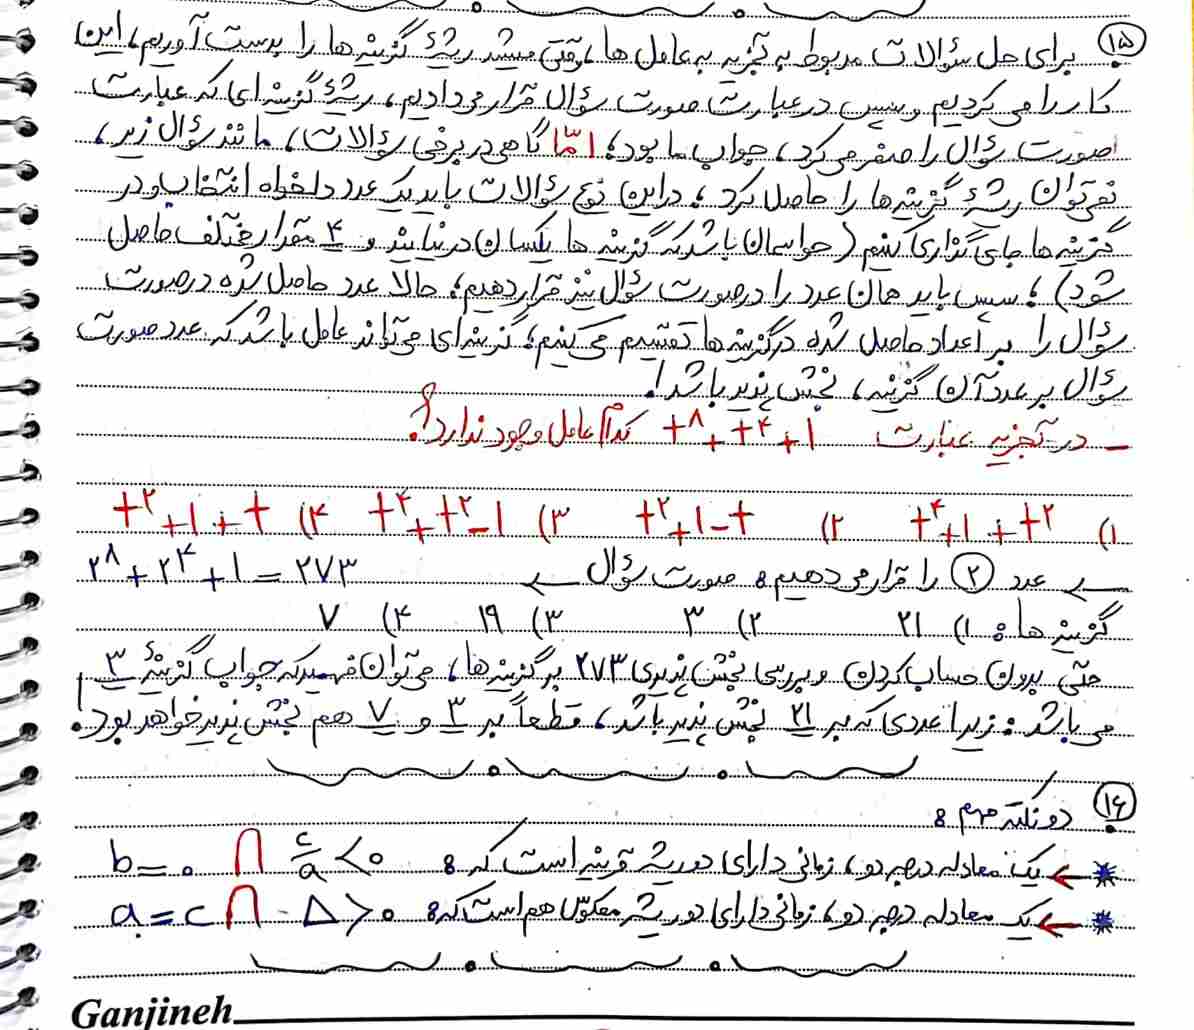 ۱۵ برای حل سؤالات مربوط به تجزیه به عامل ها، وقتی میشد ریشهٔ گزینه ها را بدست آوریم، این
کار را می کردیم و سپس در عبارت صورت سؤال قرار می دادیم، ریشهٔ گزینه ای که عبارت
صورت سؤال را صفر می کرد، جواب ما بود؛ امّا گاهی در برخی سؤالات، مانند سؤال زیر،
نمی توان ریشهٔ گزینه ها را حاصل کرد؛ در این نوع سؤالات باید یک عدد دلخواه انتخاب و در
گزینه ها جای گذاری کنیم (حواسمان باشد که گزینه ها یکسان در نیایند و ۴ مقدار مختلف حاصل
شود)؛ سپس باید همان عدد را در صورت سؤال نیز قرار دهیم؛ حالا عدد حاصل شده در صورت
سؤال را بر اعداد حاصل شده در گزینه ها تقسیم می کنیم؛ گزینه ای می تواند عامل باشد که عدد صورت
سؤال بر عدد آن گزینه، بخش پذیر باشد!
- در تجزیه عبارت t^۸+t^۴+۱ کدام عامل وجود ندارد؟
۱) t^۴+۱+t^۲ ۲) t^۲+۱-t ۳) t^۴+t^۲-۱ ۴) t^۲+۱+t
← عدد ۲ را قرار می دهیم: صورت سؤال ← ۲^۸+۲^۴+۱=۲۷۳
گزینه ها: ۱) ۲۱ ۲) ۳ ۳) ۱۹ ۴) ۷
حتّی بدون حساب کردن و بررسی بخش پذیری ۲۷۳ بر گزینه ها، می توان فهمید که جواب گزینهٔ ۳
می باشد: زیرا عددی که بر ۲۱ بخش پذیر باشد، قطعاً بر ۳ و ۷ هم بخش پذیر خواهد بود!
۱۶ دو نکته مهم:
* ← یک معادله درجه دو، زمانی دارای دو ریشه قرینه است که: b=۰ ∩ c/a<۰
* ← یک معادله درجه دو، زمانی دارای دو ریشه معکوس هم است که: a=c ∩ Δ>۰
Ganjineh